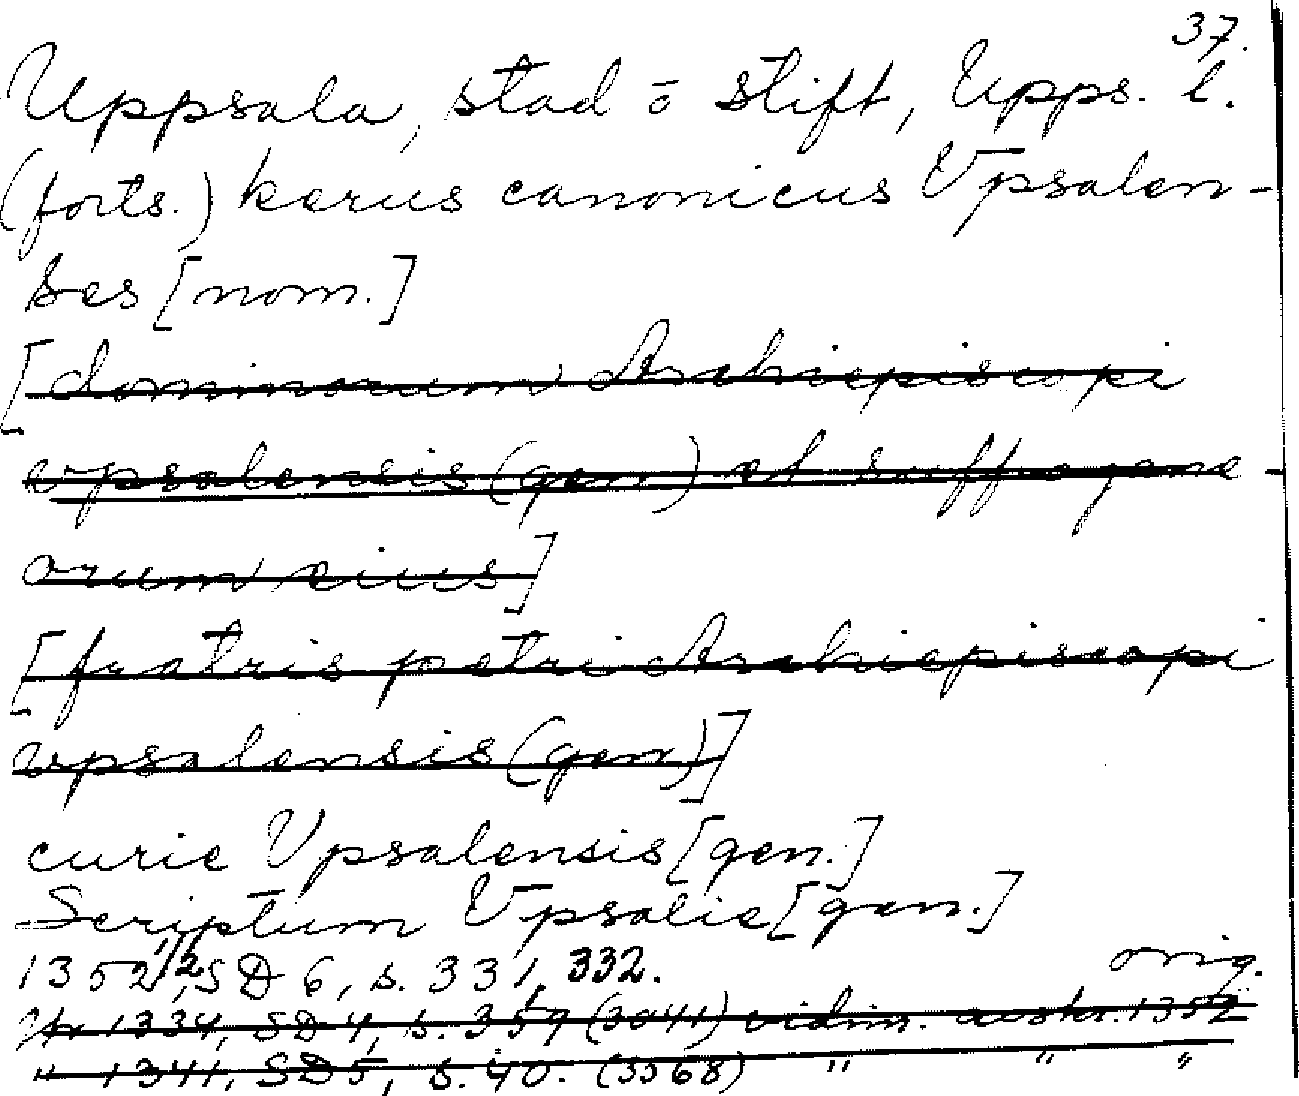 37.
Uppsala, stad o stift, Upps. l.
(forts.) karus canonicus Vpsalen-
ses [nom.]
[dominorum Archiepiscopi
vpsalensis (gen) et suffragane-
orum eius]
[fratris petri Archiepiscopi
vpsalensis (gen)]
curie Vpsalensis [gen.]
Scriptum Vpsalie [gen.]
1352 1/2, SD 6, s. 331, 332. orig.
1334, SD 4, s. 359 (3041) vidim. avskr. 1352
" 1341, SD5, s. 40. (3568) " " "